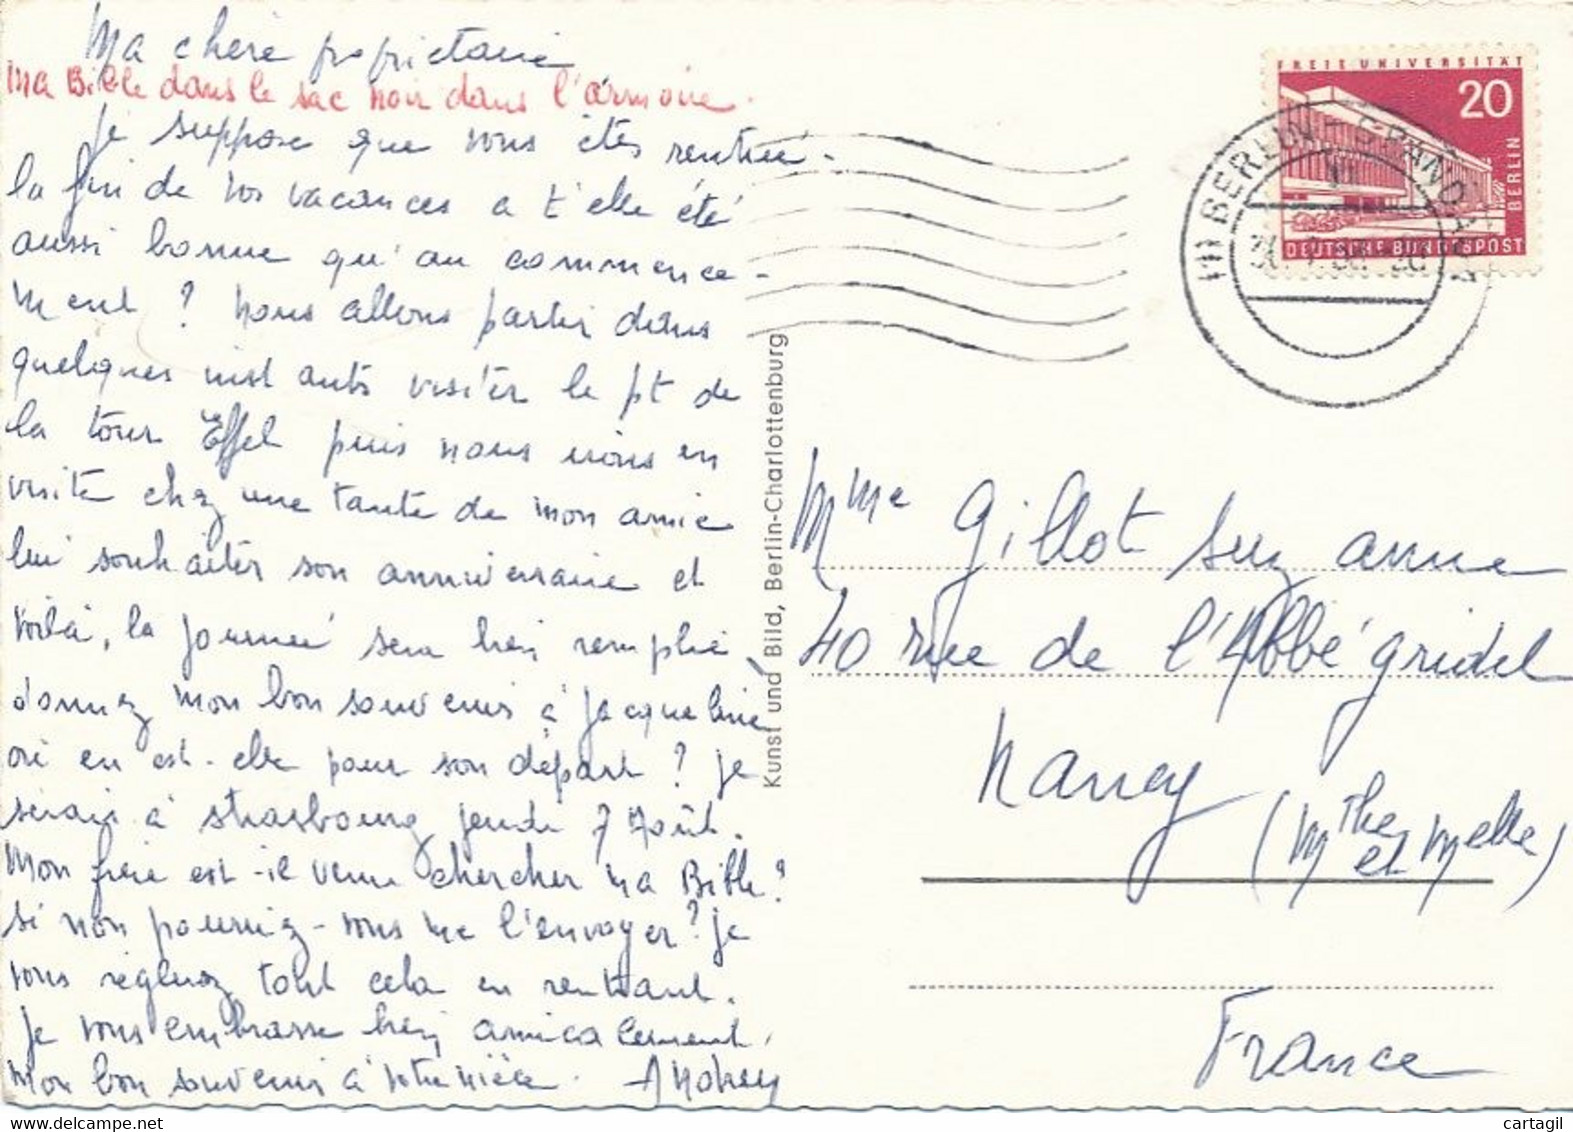 Ma chère propriétaire
Ma Bible dans le sac noir dans l'armoire.
Je suppose que vous êtes rentrée.
la fin de vos vacances a t'elle été
aussi bonne qu'au commence-
ment ? nous allons partir dans
quelques instants visiter le pt de
la tour Eiffel puis nous irons en
visite chez une tante de mon amie
lui souhaiter son anniversaire et
voilà, la journée sera bien remplie
donnez mon bon souvenir à Jacqueline
où en est-elle pour son départ ? je
serais à Strasbourg jeudi 7 Août.
Mon frère est-il venu chercher ma Bible ?
si non pourriez-vous me l'envoyer ? je
vous réglerez tout cela en rentrant.
Je vous embrasse bien amicalement.
Mon bon souvenir à votre nièce.
Kunst und Bild, Berlin-Charlottenburg
FREIE UNIVERSITÄT
20
BERLIN
DEUTSCHE BUNDESPOST
BERLIN-SPANDAU
Mme Gillot Suzanne
40 rue de l'Abbé gridel
Nancy
(Mthe et Melle)
France
cartagil